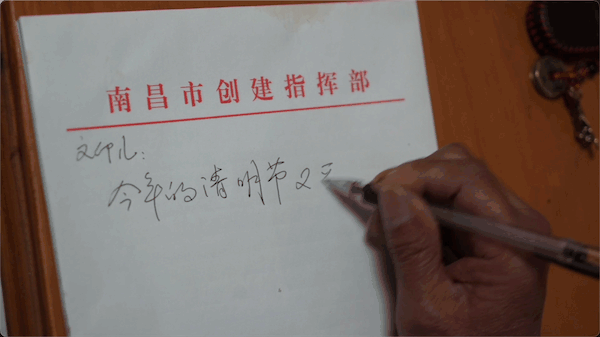 南昌市创建指挥部
文印儿：
今年的清明节又